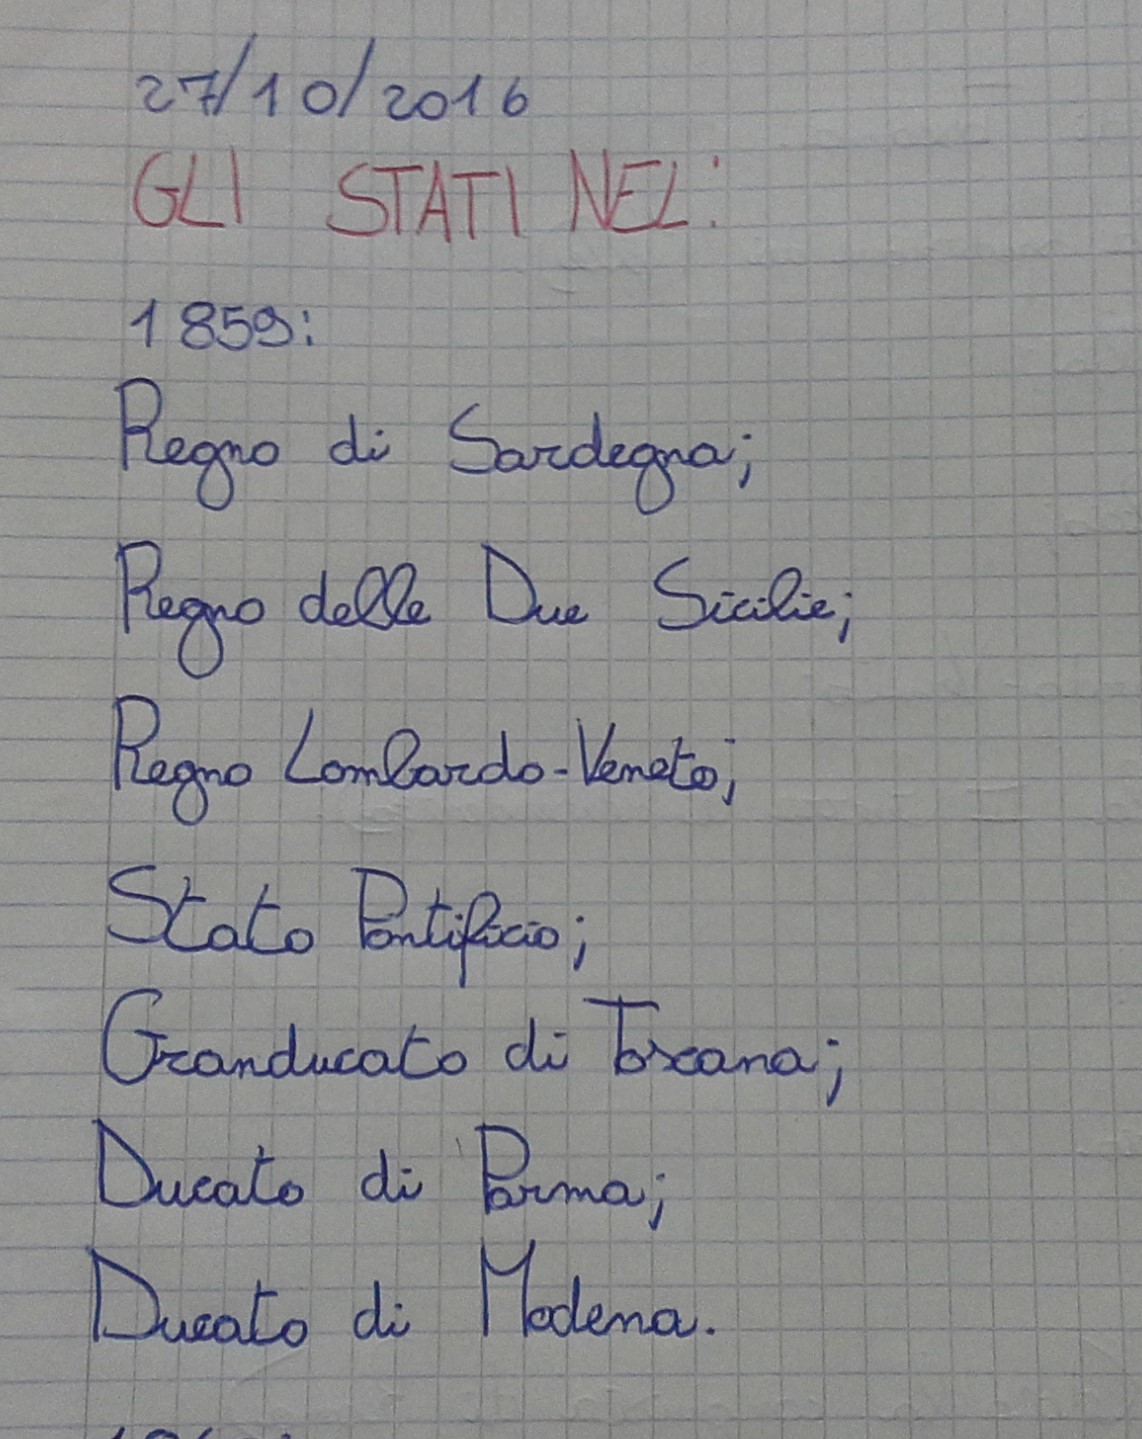 27/10/2016
GLI STATI NEL:
1859:
Regno di Sardegna;
Regno delle Due Sicilie;
Regno Lombardo-Veneto;
Stato Pontificio;
Granducato di Toscana;
Ducato di Parma;
Ducato di Modena.